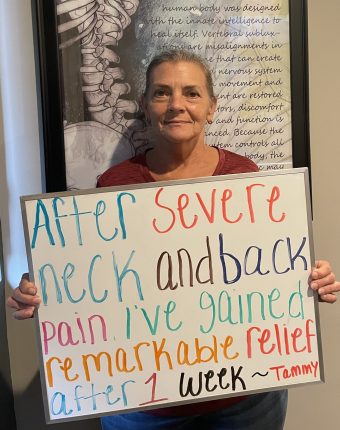 human body was designed
with the innate intelligence to
heal itself. Vertebral sublux-
ations are misalignments in
that can create
nervous system
movement and
are restored
discomfort
and function is
Because the
controls all
body, the
may
After Severe
neck and back
pain, I've gained
remarkable relief
after 1 week ~Tammy